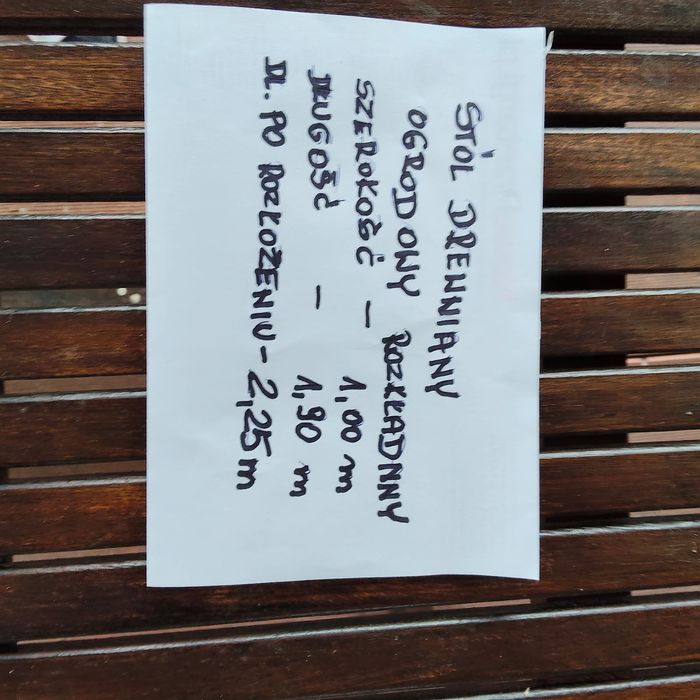 STÓL DREWNIANY
OGRODOWY ROZKŁADNNY
SZEROKOŚĆ - 1,00 m
DŁUGOŚĆ - 1,90 m
DŁ. PO ROZŁOŻENIU - 2,25 m